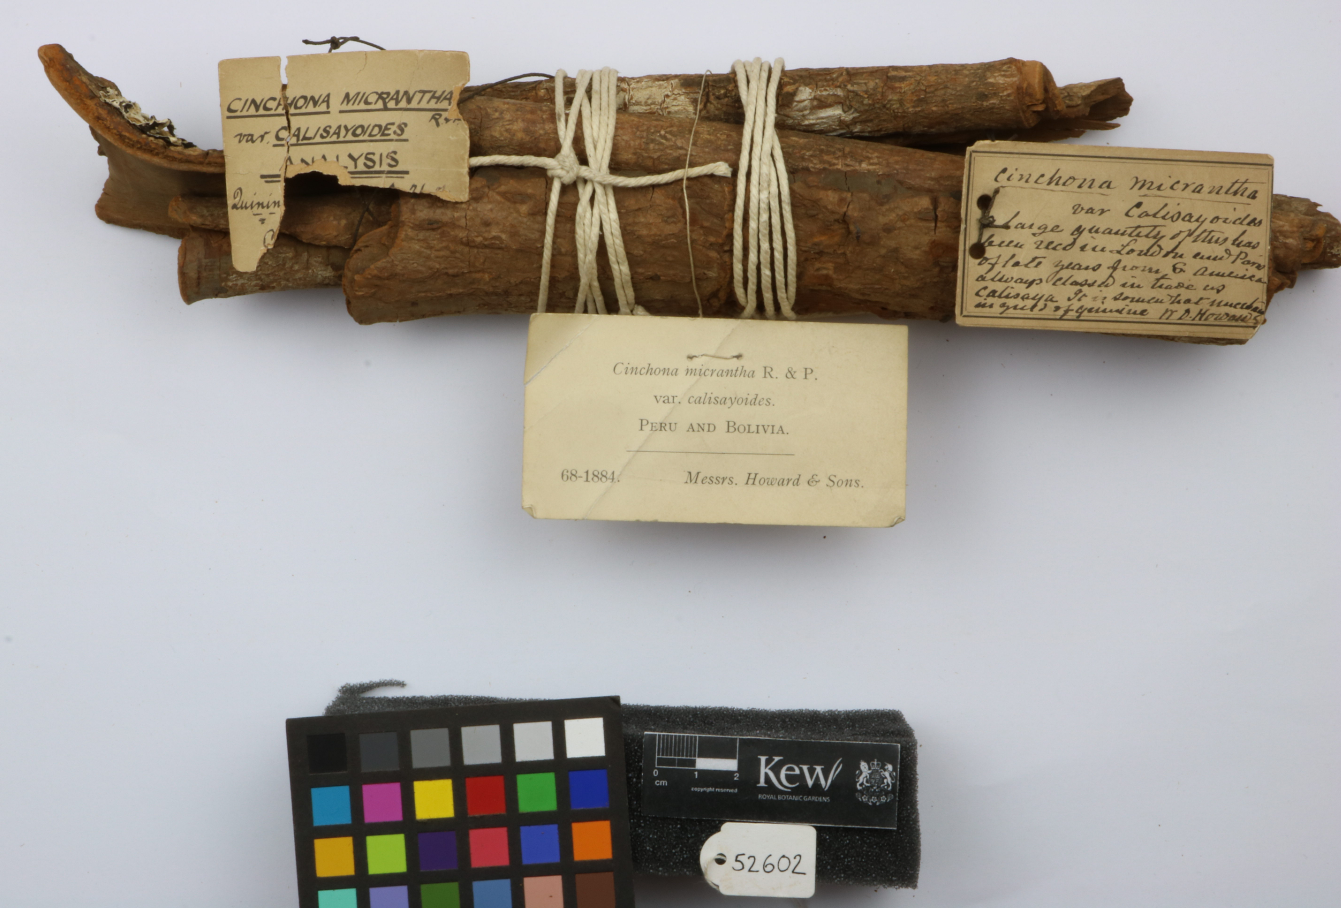 CINCHONA MICRANTHA
R
var. CALISAYOIDES
ANALYSIS
Quinin
Cinchona micrantha
var Calisayoides
Large quantity of this has
been recd in London and Paris
of late years from S America
always classed in trade as
Calisaya It is somewhat uncertain
in yield of quinine W D. Howard
Cinchona micrantha R. & P.
var. calisayoides.
PERU AND BOLIVIA.
68-1884. Messrs. Howard & Sons.
0 1 2
cm
copyright reserved
Kew
ROYAL BOTANIC GARDENS
52602